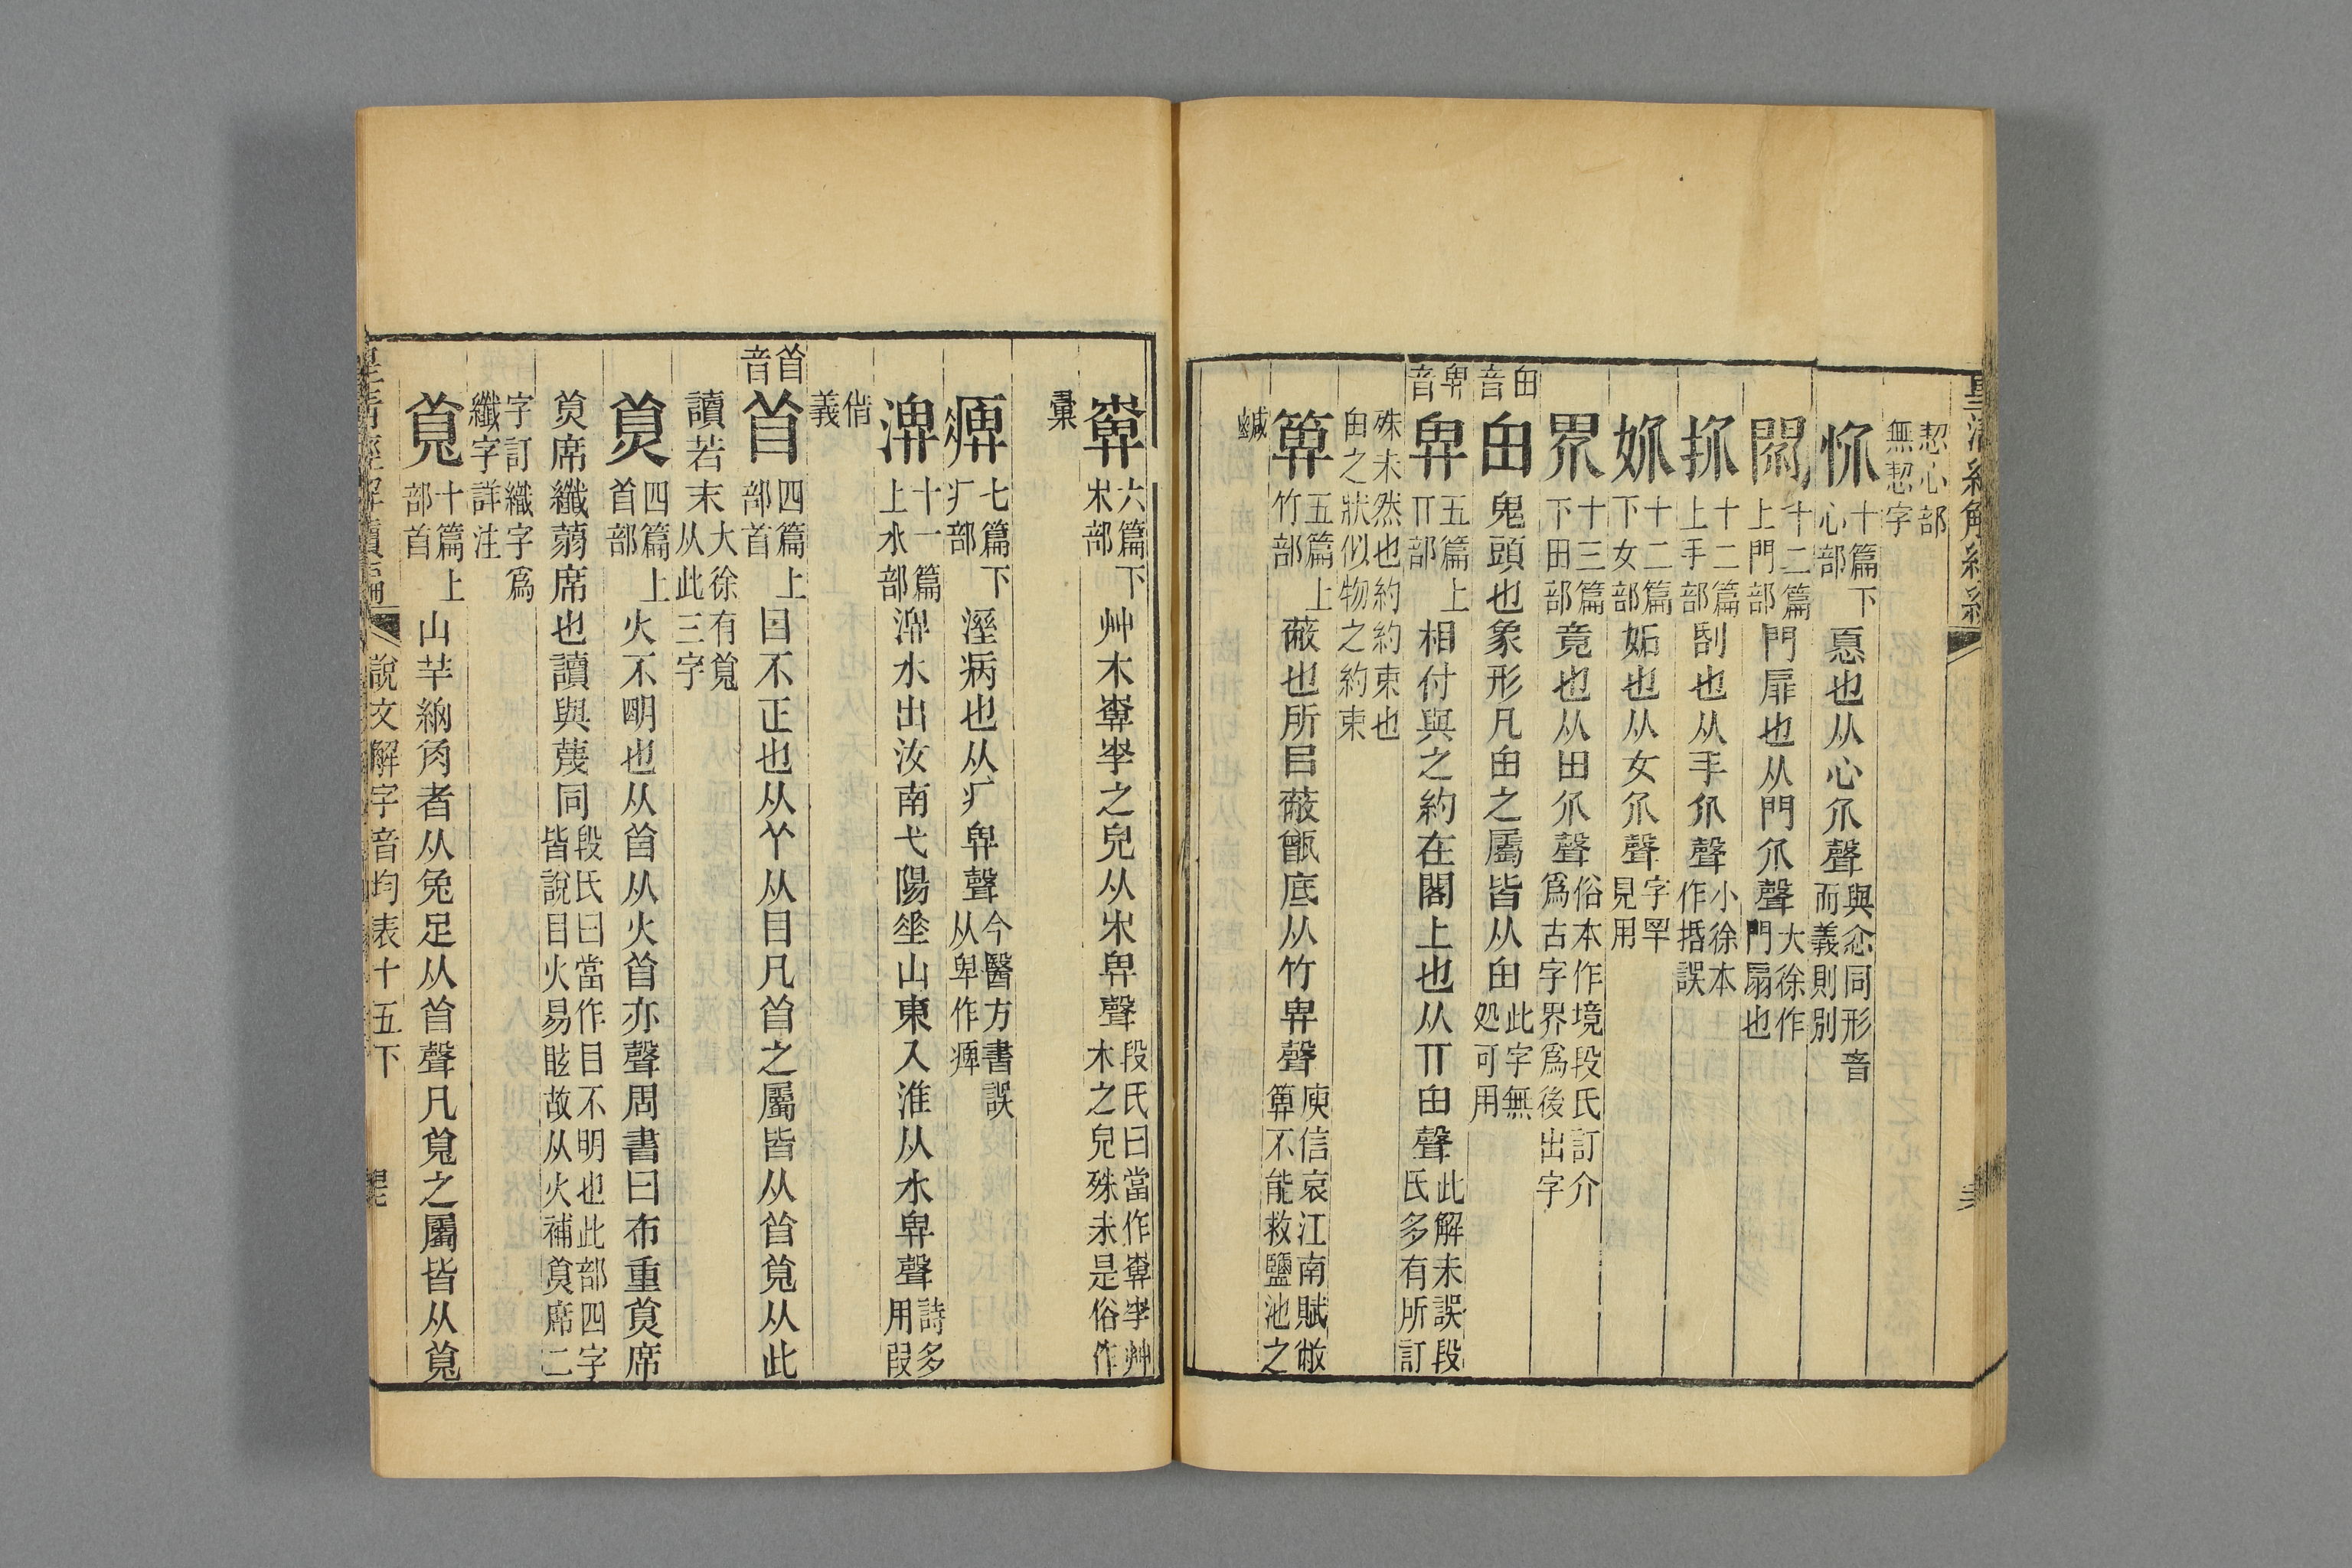 恝心部無恝字
㤅十篇下心部忥也从心介聲與忿同形音而義則別
閞十二篇上門部門扉也从門介聲大徐作門扇也
扴十二篇上手部刮也从手介聲小徐本作捂誤
妎十二篇下女部妬也从女介聲字罕見用
界十三篇下田部竟也从田介聲俗本作境段氏訂介爲古字界爲後出字
甶音
甶鬼頭也象形凡甶之屬皆从甶此字無処可用
畀音
畀五篇上丌部相付與之約在閣上也从丌甶聲此解未誤段氏多有所訂
殊未然也約約束也甶之狀似物之約束
箅五篇上竹部蔽也所㠯蔽甑底从竹畀聲庾信哀江南賦敝箅不能救鹽池之
鹹
六篇下𣎵部艸木𡴆孛之皃从𣎵畀聲段氏曰當作𡴆孛艸木之皃殊未是俗作
彙
痹七篇下疒部溼病也从疒畀聲今醫方書誤从卑作痺
淠十一篇上水部淠水出汝南弋陽垂山東入淮从水畀聲詩多用叚
偕義
𥄕音
𥄕四篇上部首目不正也从𠁥从目凡𥄕之屬皆从𥄕莧从此
讀若末大徐有莧从此三字
𦭝四篇上𥄕部火不朙也从𥄕从火𥄕亦聲周書曰布重𦭝席
𦭝席纖蒻席也讀與蔑同段氏曰當作目不明也此部四字皆說目火易眩故从火補𦭝席二
字訂織字爲纖字詳注
莧十篇上部首山羊細角者从兔足从𥄕聲凡莧之屬皆从莧
皇清經解續編
說文解字音均表十五下